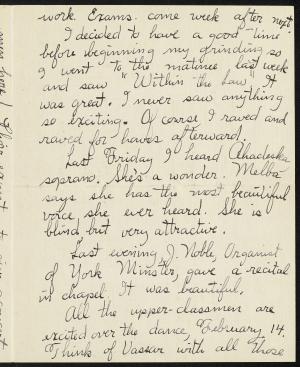 work. Exams. come week after next.
I decided to have a good time
before beginning my grinding so
I went to the matinee last week
and saw "Within the Law". It
was great. I never saw anything
so exciting. Of course I raved and
raved for hours afterward.
Last Friday I heard
soprano. She's a wonder. Melba
says she has the most beautiful
voice she ever heard. She is
blind but very attractive.
Last evening J. Noble, Organist
of York Minster, gave a recital
in chapel. It was beautiful.
All the upper-classmen are
excited over the dance, February 14.
Think of Vassar with all those